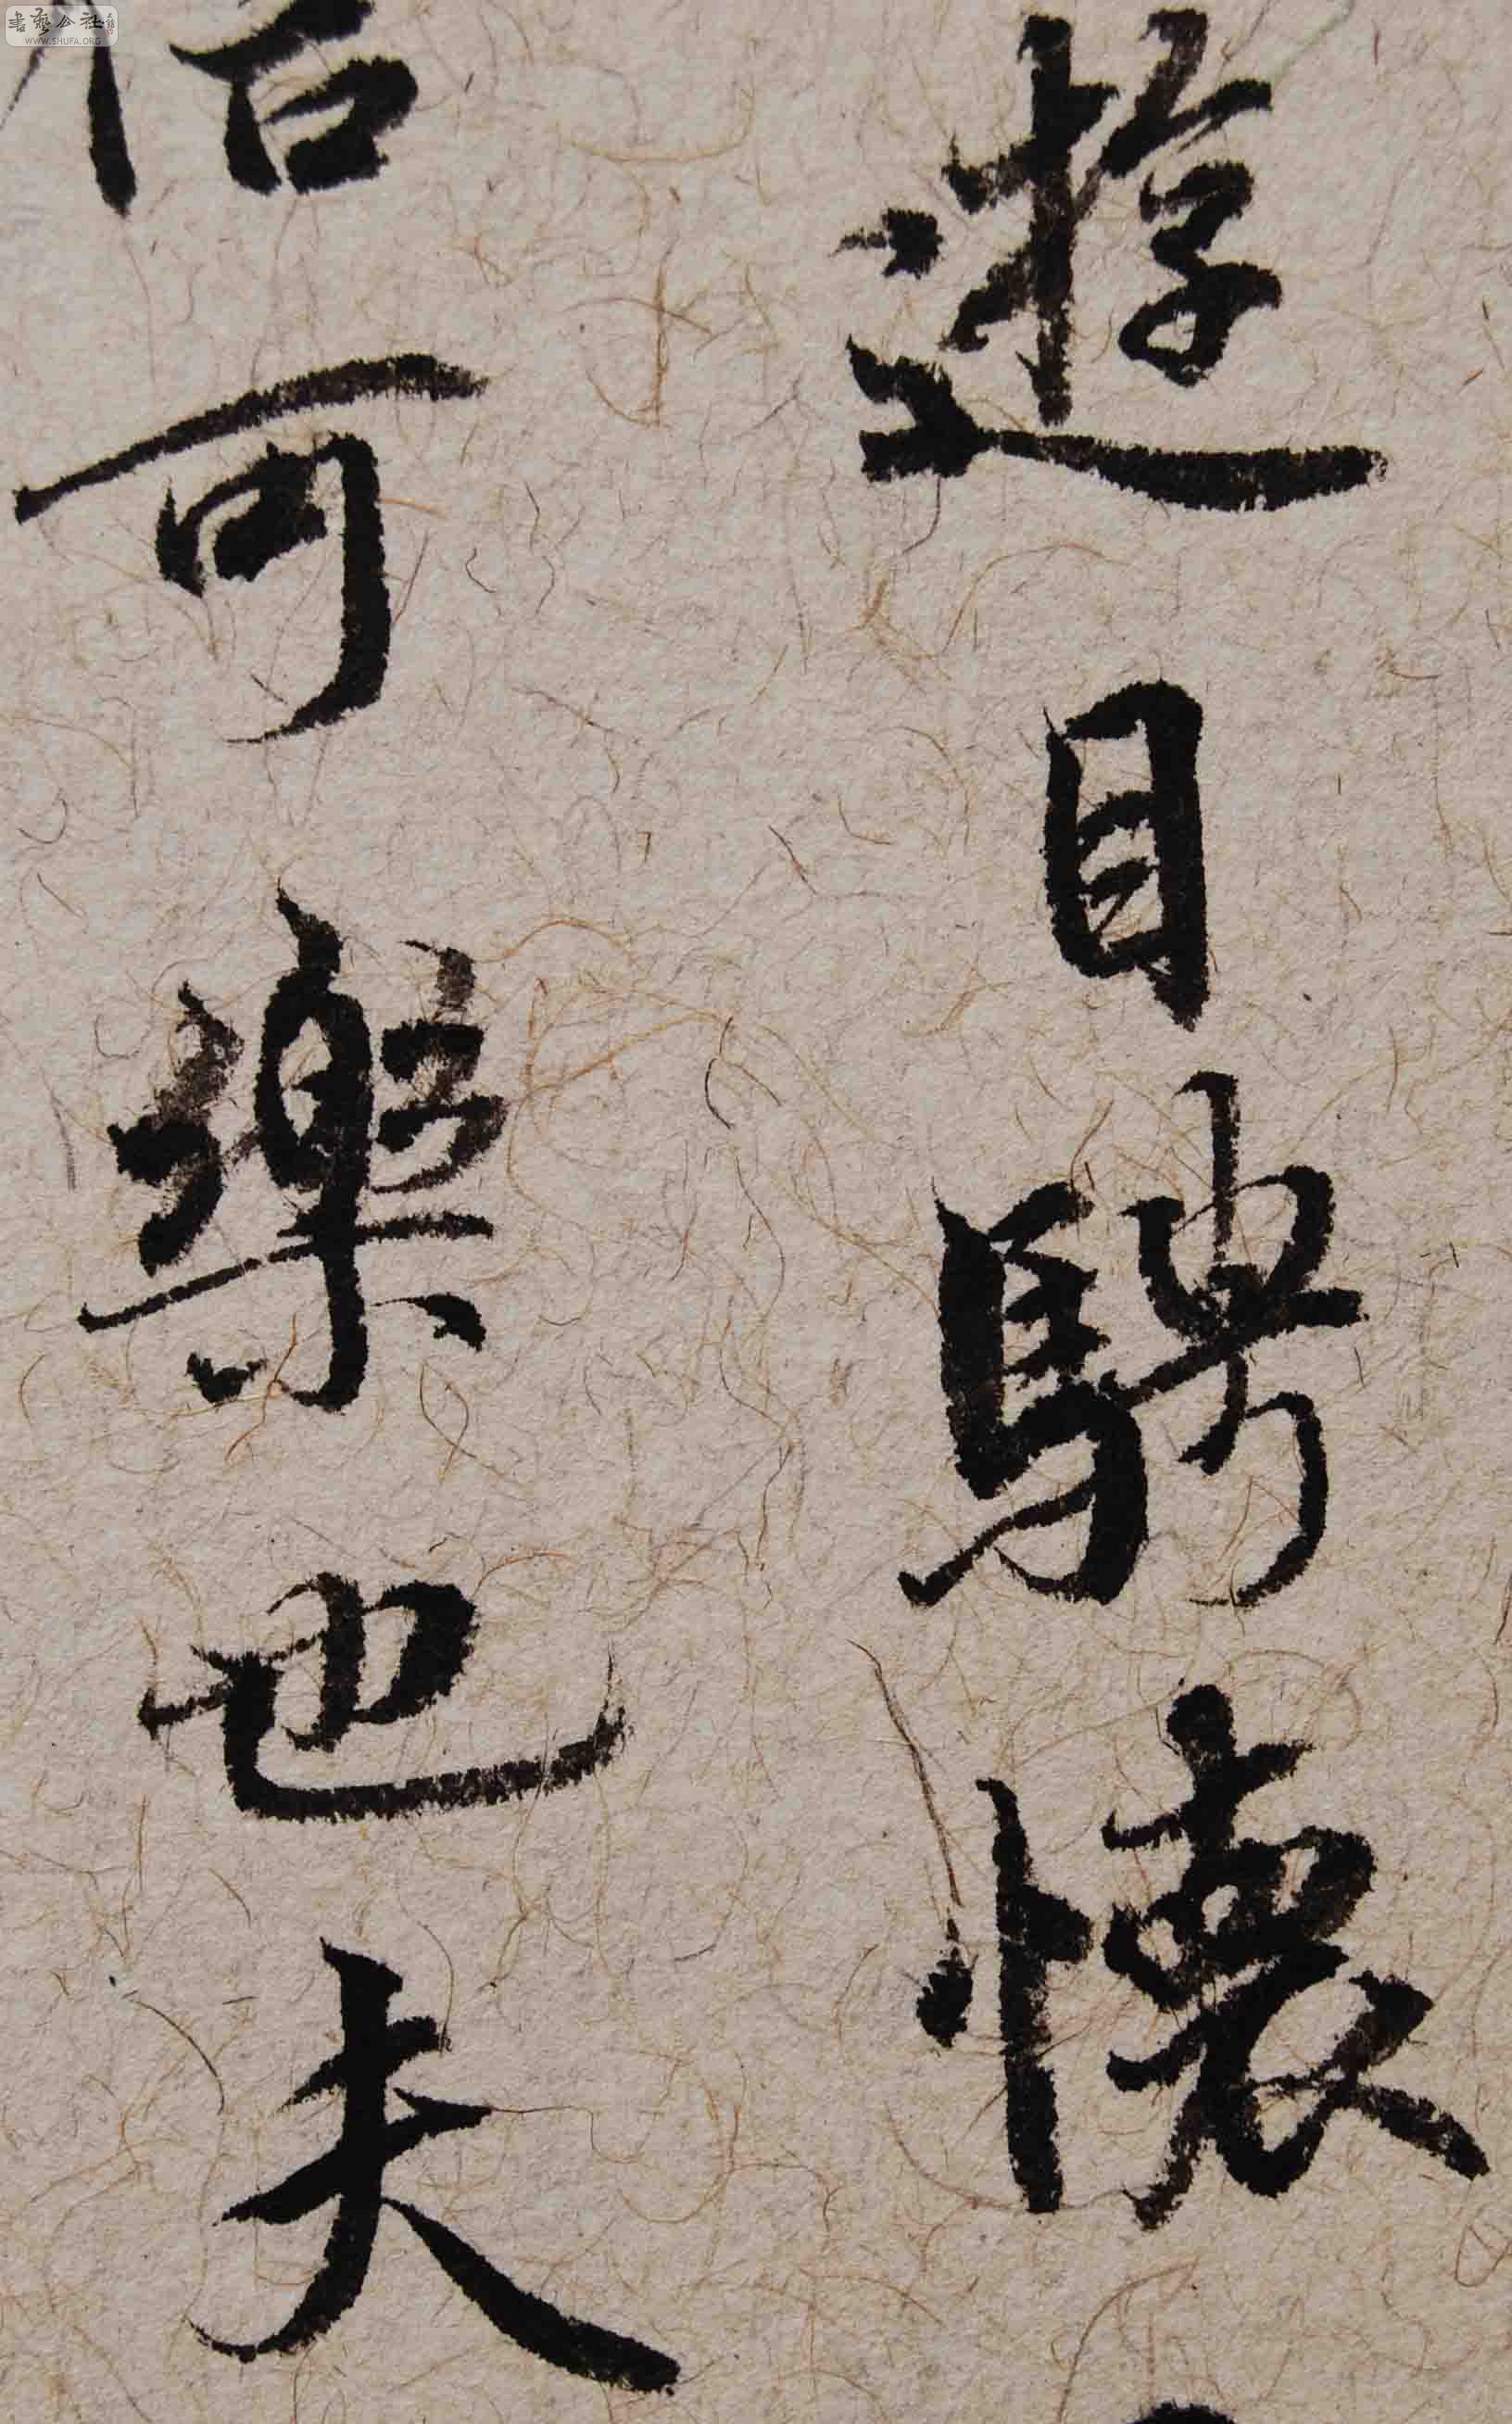 遊目騁懷
信可樂也夫
書藝公社
WWW.SHUFA.ORG